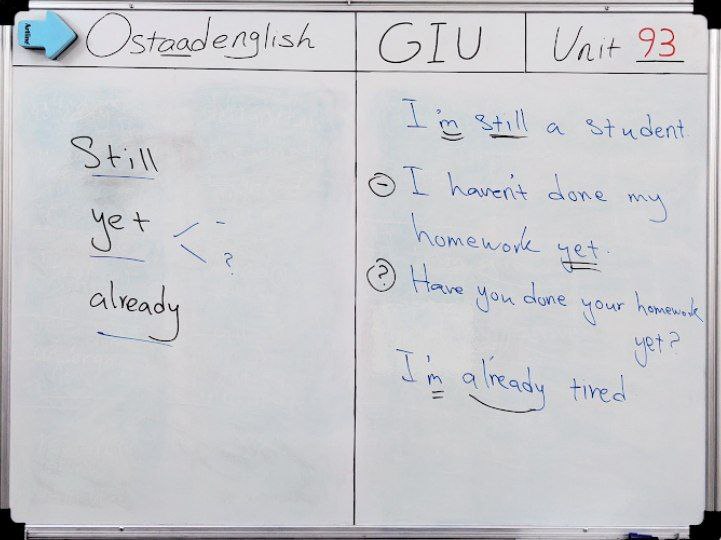 Ostaadenglish GIU Unit 93
Still
yet < -
?
already
I'm still a student.
- I haven't done my
homework yet.
? Have you done your homework
yet?
I'm already tired